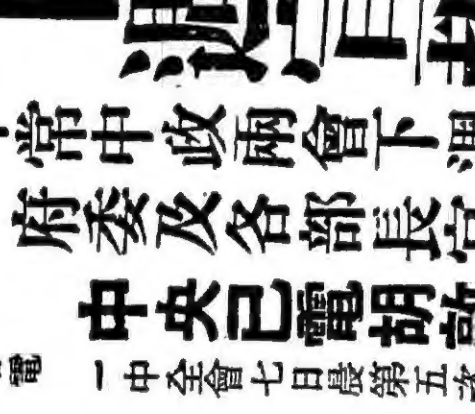 常中政兩會下週
府委及各部長官
中央已電胡敦
電 一中全會七日晨第五次